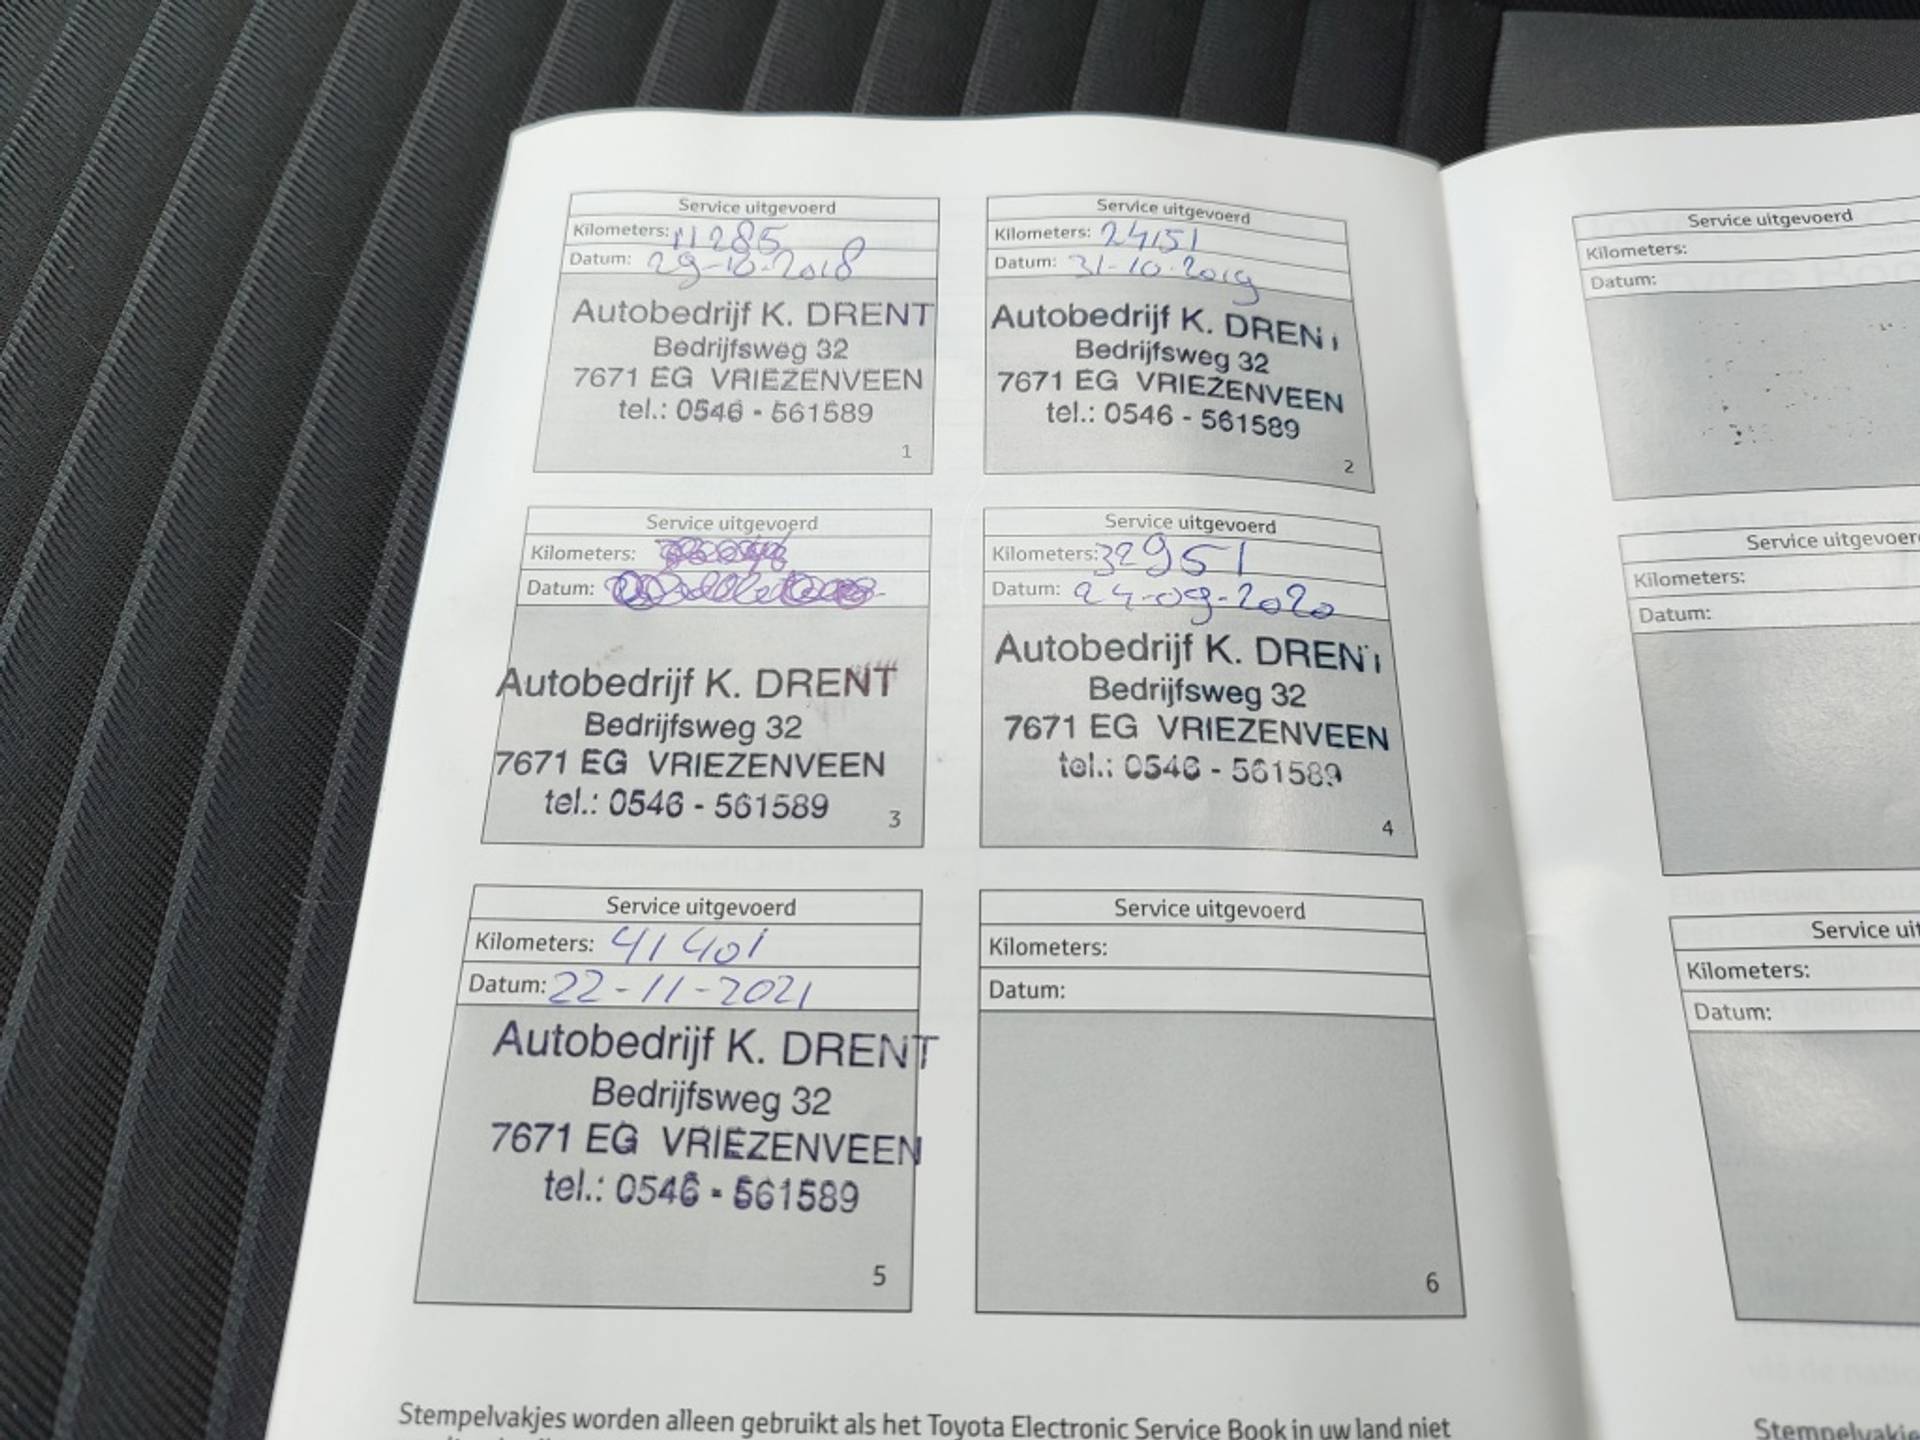 Service uitgevoerd
Kilometers: 11285
Datum: 29-10-2018
Autobedrijf K. DRENT
Bedrijfsweg 32
7671 EG VRIEZENVEEN
tel.: 0546 - 561589
1
Service uitgevoerd
Kilometers: 24151
Datum: 31-10-2019
Autobedrijf K. DRENT
Bedrijfsweg 32
7671 EG VRIEZENVEEN
tel.: 0546 - 561589
2
Service uitgevoerd
Kilometers:
Datum:
Autobedrijf K. DRENT
Bedrijfsweg 32
7671 EG VRIEZENVEEN
tel.: 0546 - 561589
3
Service uitgevoerd
Kilometers: 32951
Datum: 24-09-2020
Autobedrijf K. DRENT
Bedrijfsweg 32
7671 EG VRIEZENVEEN
tel.: 0546 - 561589
4
Service uitgevoerd
Kilometers: 41401
Datum: 22-11-2021
Autobedrijf K. DRENT
Bedrijfsweg 32
7671 EG VRIEZENVEEN
tel.: 0546 - 561589
5
Service uitgevoerd
Kilometers:
Datum:
6
Stempelvakjes worden alleen gebruikt als het Toyota Electronic Service Book in uw land niet
Service uitgevoerd
Kilometers:
Datum:
Service uitgevoerd
Kilometers:
Datum:
Service uit
Kilometers:
Datum:
Stempelvakjes